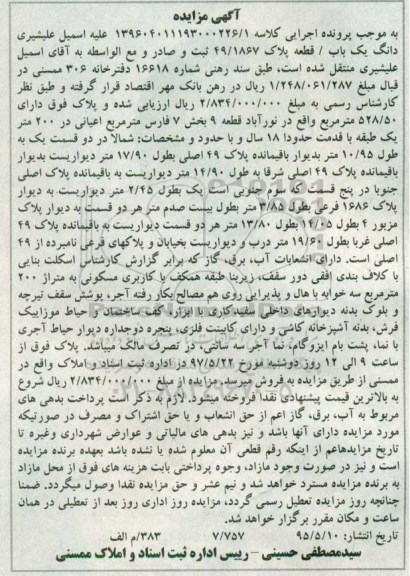 آگهی مزایده
به موجب پرونده اجرایی کلاسه ۱۳۹۶۰۴۰۱۱۱۹۳۰۰۰۲۲۶/۱ علیه اسمیل علیشیری
دانگ یک باب / قطعه پلاک ۴۹/۱۸۶۷ ثبت و صادر و مع الواسطه به آقای اسمیل
علیشیری منتقل شده است، طبق سند رهنی شماره ۱۶۶۱۸ دفترخانه ۳۰۶ ممسنی در
قبال مبلغ ۱/۲۴۸/۰۶۱/۲۸۷ ریال در رهن بانک مهر اقتصاد قرار گرفته و طبق نظر
کارشناس رسمی به مبلغ ۲/۸۳۴/۰۰۰/۰۰۰ ریال ارزیابی شده و پلاک فوق دارای
۵۲۸/۵۰ مترمربع واقع در نورآباد قطعه ۹ بخش ۷ فارس مترمربع اعیانی در ۲۰۰ متر
یک طبقه با قدمت حدودا ۱۸ سال و با حدود و مشخصات: شمالا در دو قسمت یک به
طول ۱۰/۹۵ متر بدیوار باقیمانده پلاک ۴۹ اصلی بطول ۱۷/۹۰ متر دیواریست بدیوار
باقیمانده پلاک ۴۹ اصلی شرقا به طول ۱۴/۹۰ متر دیواریست به باقیمانده پلاک اصلی
جنوبا در پنج قسمت که سوم جنوبی است یک بطول ۲/۴۵ متر دیواریست به دیوار
پلاک ۱۶۸۶ فرعی بطول ۳/۸۵ متر بطول بیست صدم متر هر دو قسمت به دیوار پلاک
مزبور ۴ بطول ۱۴/۰۵ بطول ۱۳/۸۰ متر هر دو قسمت دیواریست به باقیمانده پلاک ۴۹
اصلی غربا بطول ۱۹/۶۰ متر درب و دیواریست بخیابان و پلاکهای فرعی نامبرده از ۴۹
اصلی است. دارای انشعابات آب، برق، گاز که برابر گزارش کارشناس اسکلت بنایی
با کلاف بندی افقی دور سقف، زیربنا طبقه همکف با کاربری مسکونی به متراژ ۲۰۰
مترمربع سه خوابه با هال و پذیرایی روی هم مصالح بکار رفته آجر، پوشش سقف تیرچه
و بلوک بدنه دیوارهای داخلی سفیدکاری با ابزار، کف ساختمان و حیاط موزاییک
فرش، بدنه آشپزخانه کاشی و دارای کابینت فلزی، پنجره دوجداره دیوار حیاط آجری
با نما، پشت بام ایزوگام، نما آجر سه سانتی، در تصرف مالک میباشد. پلاک فوق از
ساعت ۹ الی ۱۲ روز دوشنبه مورخ ۹۷/۵/۲۲ در اداره ثبت اسناد و املاک واقع در
ممسنی از طریق مزایده به فروش میرسد. مزایده از مبلغ ۲/۸۳۴/۰۰۰/۰۰۰ ریال شروع
به بالاترین قیمت پیشنهادی نقدا فروخته میشود. لازم به ذکر است پرداخت بدهی های
مربوط به آب، برق، گاز اعم از حق انشعاب و یا حق اشتراک و مصرف در صورتیکه
مورد مزایده دارای آنها باشد و نیز بدهی های مالیاتی و عوارض شهرداری وغیره تا
تاریخ مزایدهاعم از اینکه رقم قطعی آن معلوم شده یا نشده باشد بعهده برنده مزایده
است و نیز در صورت وجود مازاد، وجوه پرداختی بابت هزینه های فوق از محل مازاد
به برنده مزایده مسترد خواهد شد و نیم عشر و حق مزایده نقدا وصول میگردد. ضمنا
چنانچه روز مزایده تعطیل رسمی گردد، مزایده روز اداری روز بعد از تعطیلی در همان
ساعت و مکان مقرر برگزار خواهد شد.
تاریخ انتشار: ۹۵/۵/۱۰ ۷/۷۵۷ ۳۸۳/م الف
سیدمصطفی حسینی – رییس اداره ثبت اسناد و املاک ممسنی